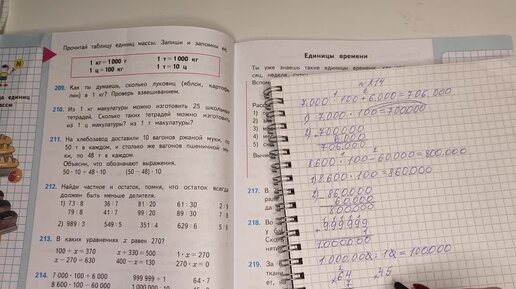 Прочитай таблицу единиц массы. Запиши и запомни её.
1 кг = 1000 г 1 т = 1000 кг
1 ц = 100 кг 1 т = 10 ц
209. Как ты думаешь, сколько луковиц (яблок, картофелин) в 1 кг? Проверь взвешиванием.
210. Из 1 кг макулатуры можно изготовить 25 школьных тетрадей. Сколько таких тетрадей можно изготовить из 1 ц макулатуры? из 1 т макулатуры?
211. На хлебозавод доставили 10 вагонов ржаной муки, по 50 т в каждом, и столько же вагонов пшеничной муки, по 48 т в каждом.
Объясни, что обозначают выражения.
50 · 10 + 48 · 10 (50 − 48) · 10
212. Найди частное и остаток, помня, что остаток всегда должен быть меньше делителя.
1) 73 : 8 36 : 7 81 : 20 61 : 30
79 : 8 41 : 7 99 : 20 89 : 30
2) 989 : 3 549 : 5 351 : 4 629 : 6
213. В каких уравнениях x равен 270?
100 + x = 370 x + 330 = 500 1 · x = 270
x − 270 = 630 400 − x = 130 270 · x = 0
214. 7 000 · 100 + 6 000 999 999 + 1 64 · 7
Единицы времени
Ты уже знаешь такие единицы времени
217.
218. Во
219. За
№ 214
7.000 · 100 + 6.000 = 706.000
1) 7.000 · 100 = 700000
2) 700000
6.000
706.000
8600 · 100 − 60.000 = 800.000
1) 8.600 · 100 = 860.000
2) 860.000
60.000
800.000
999999
1000000
1.000.000 : 10 = 100.000
× 64
7
× 45